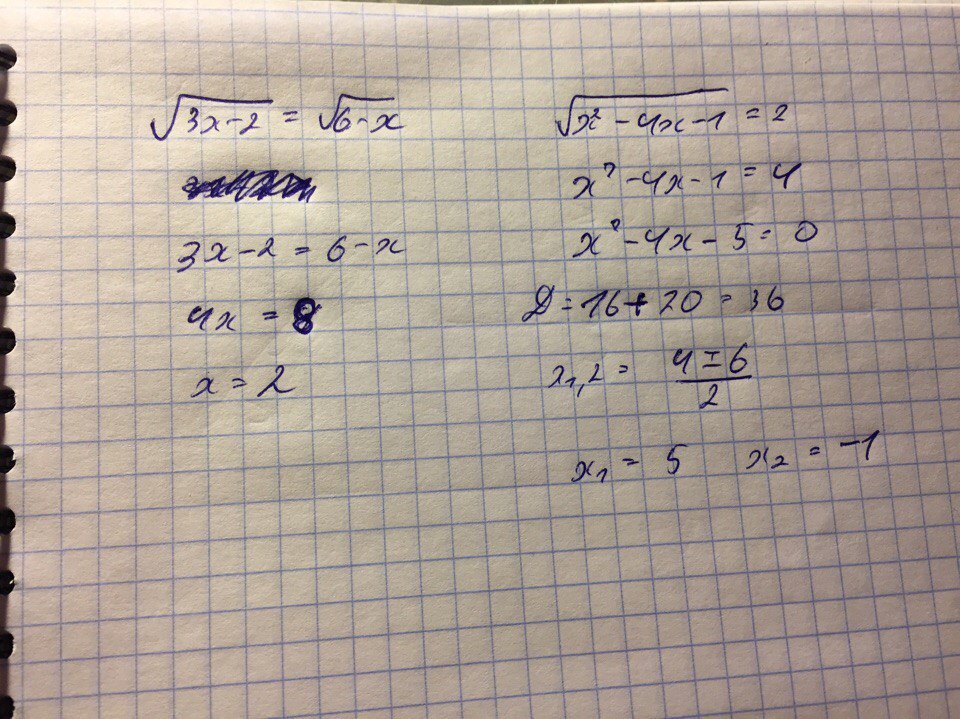 √(3x-2) = √(6-x)
3x-2 = 6-x
4x = 8
x = 2
√(x²-4x-1) = 2
x²-4x-1 = 4
x²-4x-5 = 0
D = 16+20 = 36
x₁,₂ = (4±6)/2
x₁ = 5 x₂ = -1